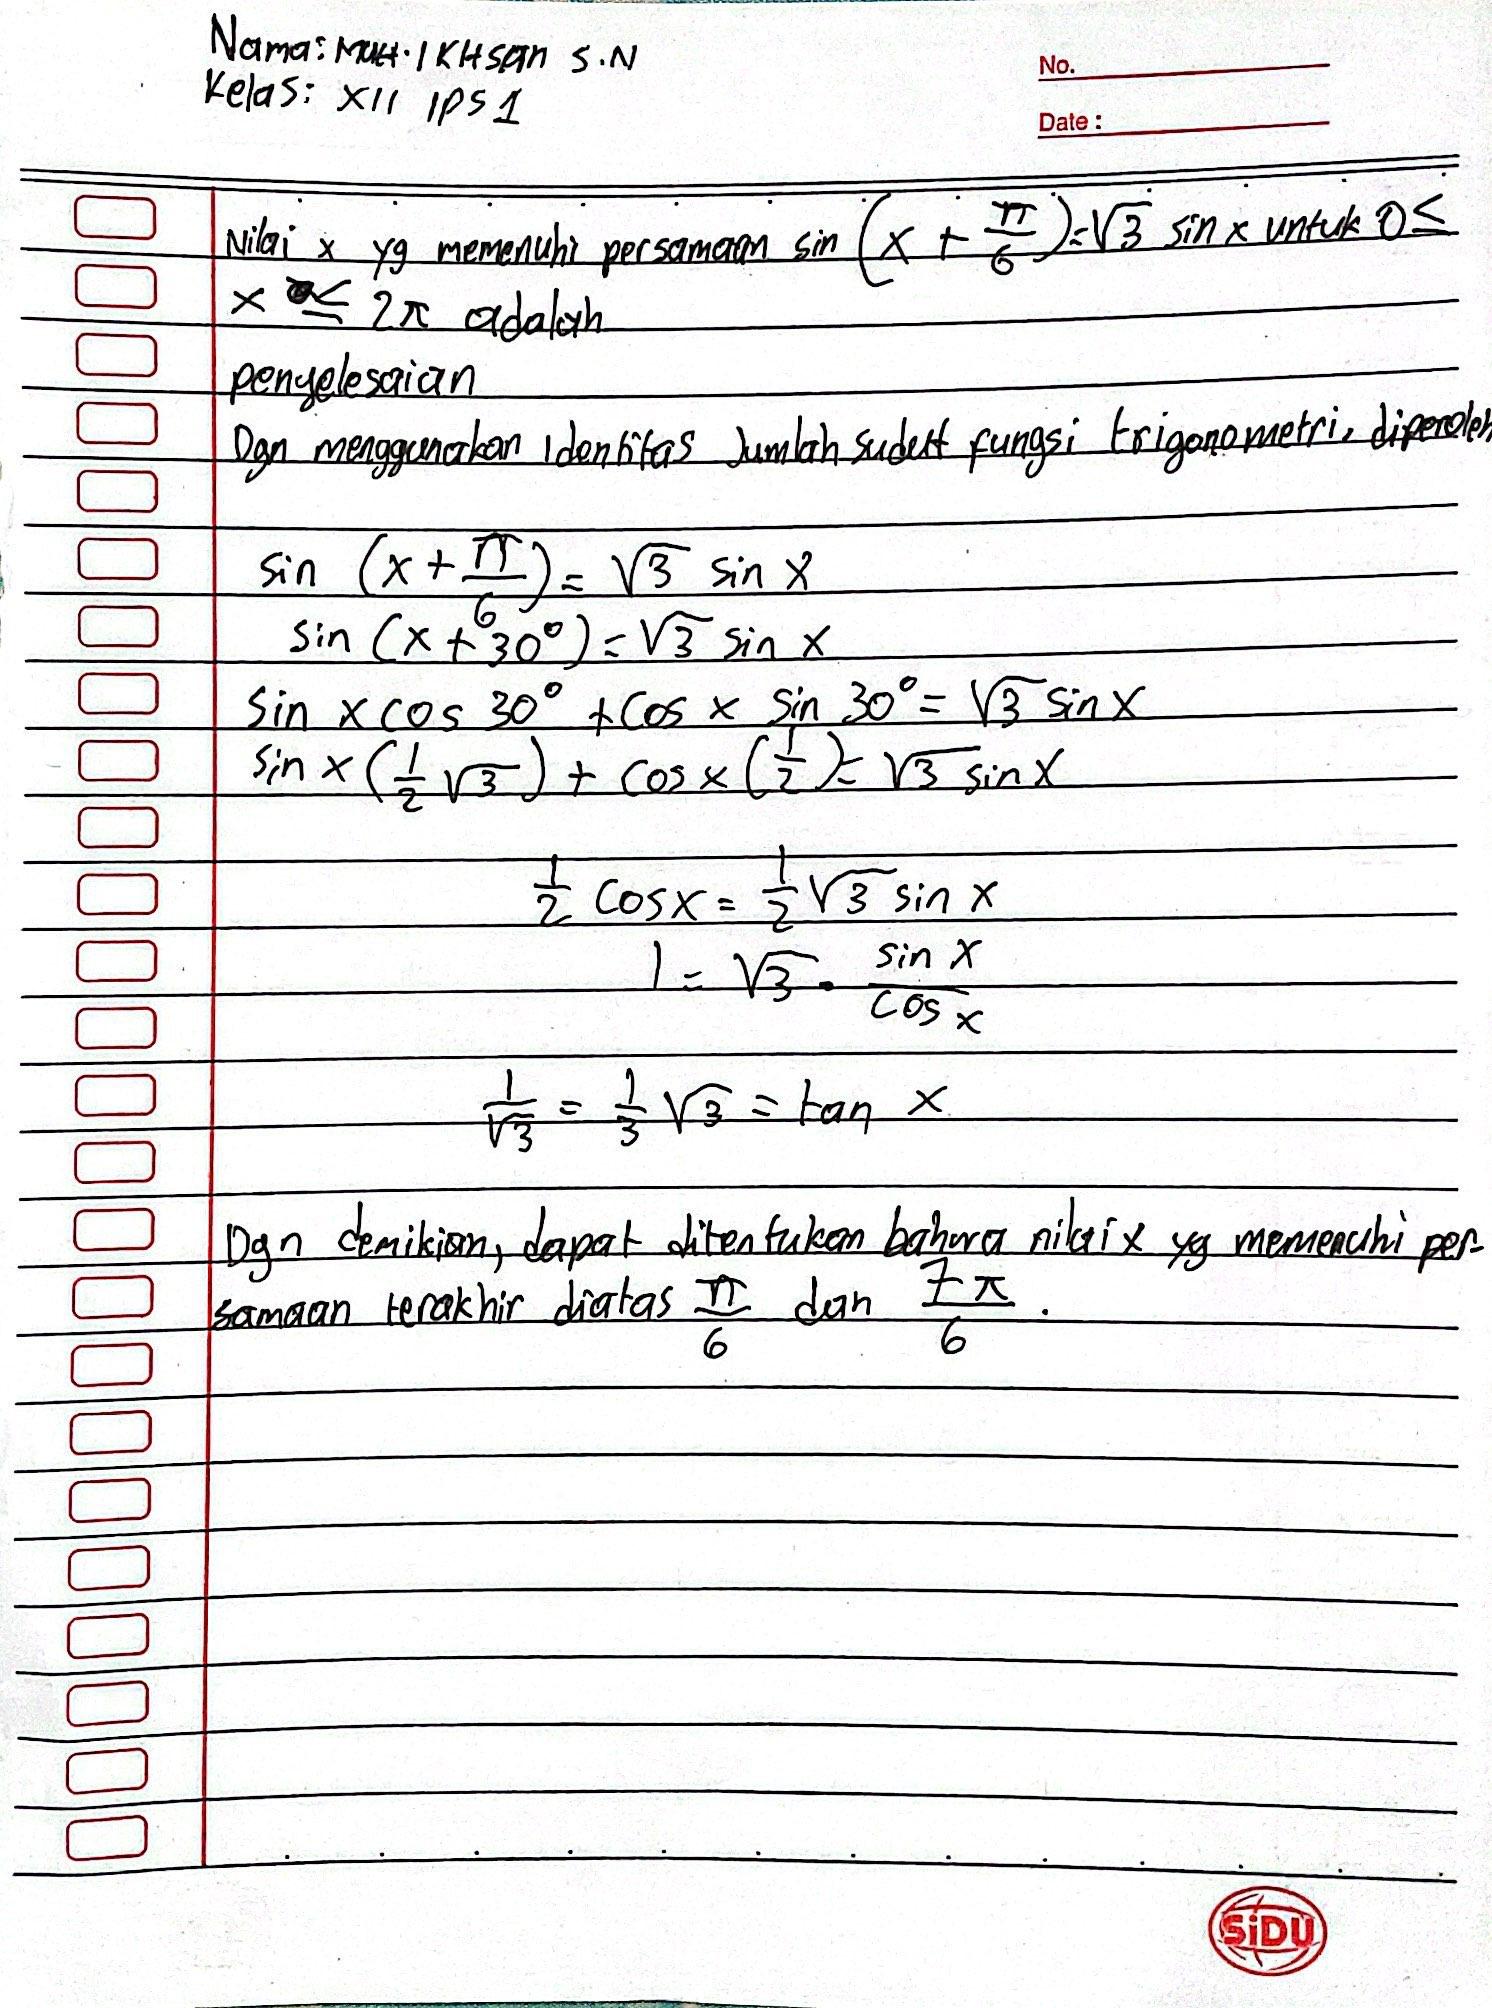 Nama: MUH. IKHSAN S.N
Kelas: XII IPS 1
No.
Date :
Nilai x yg memenuhi persamaan sin (x + π/6) = √3 sin x untuk 0 ≤
x ≤ 2π adalah
penyelesaian
Dgn menggunakan identitas Jumlah sudut fungsi trigonometri, diperoleh
sin (x + π/6) = √3 sin x
sin (x + 30°) = √3 sin x
sin x cos 30° + cos x sin 30° = √3 sin x
sin x (1/2 √3) + cos x (1/2) = √3 sin x
1/2 cos x = 1/2 √3 sin x
1 = √3 . sin x / cos x
1/√3 = 1/3 √3 = tan x
Dgn demikian, dapat ditentukan bahwa nilai x yg memenuhi per-
samaan terakhir diatas π/6 dan 7π/6.
SiDU